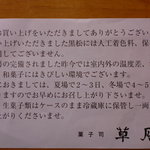 お買い上げをいただきましてありがとうござい
い上げいただきました黒松には人工着色料、保
用しておりません。
房の完備されました昨今では室内外の温度差、
和菓子にはきびしい環境でございます。
ておりますので、夏場で2〜3日、冬場で4〜5
ますので早めにお召し上がり下さいませ。
生菓子類はケースのまま冷蔵庫に保管し一両
し上がり下さいませ。
菓子司 草月